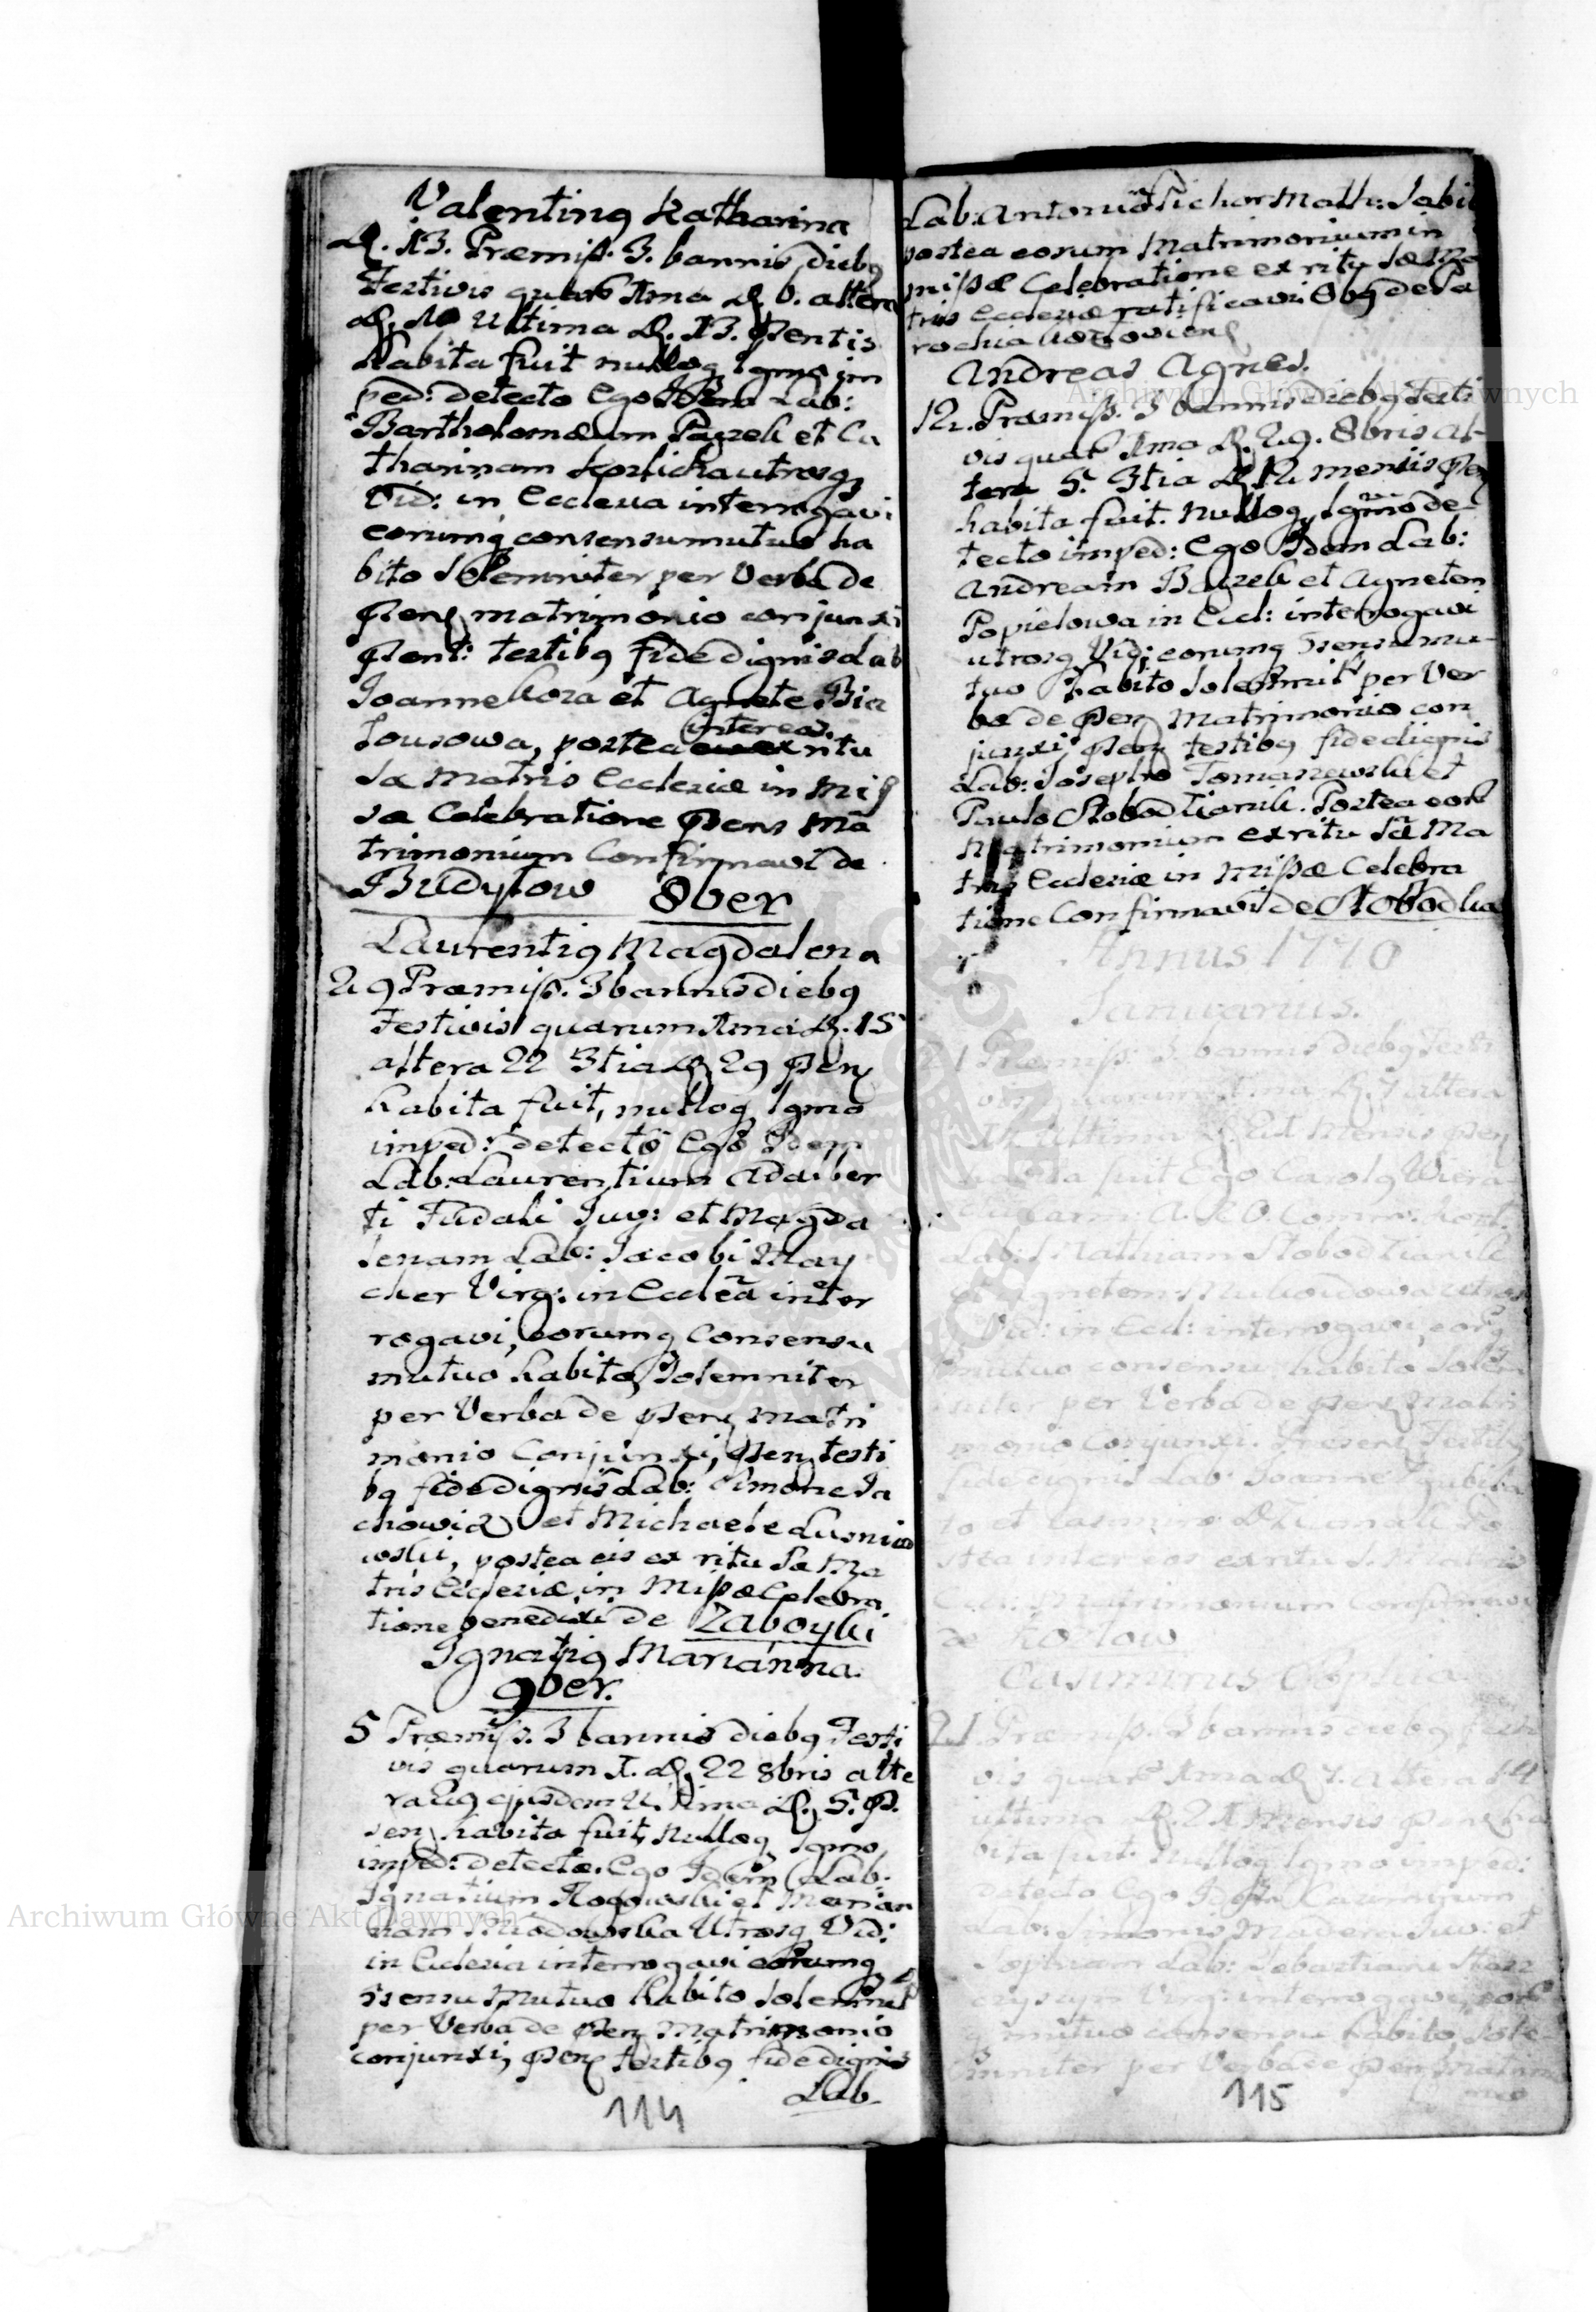 Valentinq Katharina
D. 13. Præmiss. 3. bannis diebq
Festivis quar Ima D. 6. altera
D. 10 Ultima D. 13. Psentis
habita fuit nulloq lgmo im
ped: detecto Ego Idem Lab:
Bartholomæum Payzek et Ca
tharinam Kozlicka utrosq
Vid: in Ecclesia interrogavi
eorumq consensu mutuo ha
bito solemniter per Verba de
Psenq matrimonio conjunxi
Psent: testibq fide dignis Lab
Joanne Koza et Agnete Bia
lousowa, postea inter eos ritu
Sæ Matris Ecclesiæ in Mis
sæ Celebratione Psens Ma
trimonium Confirmavi de
Budyłow 8ber
Laurentiq Magdalena
29 Præmiss. 3 bannis diebq
Festivis quarum Ima D. 15
altera 22 3tia D 29 Psenq
habita fuit, nulloq lgmo
imped: detecto Ego Idem
Lab: Laurentium Adalber
ti Fudali Juv: et Magda
lenam Lab: Jacobi May
cher Virg: in Eccleã inter
rogavi, eorumq Consensu
mutuo habito, Solemniter
per Verba de Psenq matri
monio Conjunxi, Psenq testi
bq fide dignis Lab: Simone Sta
chowicz et Michaele Lusnia
wski, postea eis ex ritu Sæ Ma
tris Ecclesiæ in Missæ Celebra
tione benedixi de Zaboyki
Ignatiq Marianna
9ber.
5 Præmiss. 3 bannis diebq Festi
vis quarum I. D. 22 8bris alte
ra 29 ejusdem Ultima D. 5. P.
senq habita fuit, Nulloq lgmo
imped: detecto. Ego Idem Lab:
Ignatium Rogowski et Marian
nam Miodowska Utrosq Vid:
in Ecclesia interrogavi eorumq
3sensu Mutuo habito Solemnit
per Verba de Psenq Matrimonio
conjunxi, Psenq testibq fide dignis
Lab.
114
Lab: Antonio Sichor Math: Sabi
postea eorum Matrimonium in
Missæ Celebratione ex ritu Sæ Ma
tris Ecclesiæ ratificavi de Pa
rochia Kozłovienq
Andreas Agnes.
12. Præmiss. 3 bannis diebq Festi
vis quar Ima D. 29. 8bris al-
tera 5. 3tia D 12 mensis Psenq
habita fuit. Nulloq lgmo de-
tecto imped: Ego Idem Lab:
Andream Bayzek et Agnetem
Popielowa in Eccl: interrogavi
utrosq Vid: eorumq 3sensu mu-
tuo habito Solemnit per Ver
ba de Psenq Matrimonio con
junxi Psenq testibq fide dignis
Lab: Josepho Tomaszewski et
Paulo Słobodzianik. Postea eor
Matrimonium ex ritu Sæ Ma
tris Ecclesiæ in Missæ Celebra
tione Confirmavi de Słobodka
Annus 1770
Januarius.
21 Præmiss. 3. bannis diebq Festi
vis quarum Ima D. 7 altera
14 Ultima D. 21 Mensis Psenq
habita fuit Ego Carolq Wiera
Carm. A. R. O. Comm: Kozl.
Lab: Mathiam Słobodzianik
et Agnetem utrosq
Vid: in Eccl: interrogavi, eorq
mutuo consensu habito Solem
niter per Verba de Psenq Matri
monio Conjunxi. Presenq Testibq
fide dignis Lab: Joanne
to et Casimiro Po
stea inter eos ex ritu S. Matris
Eccl: Matrimonium Confirmavi
de Kozłow
Casimirus Sophia
21 Præmiss. 3 bannis diebq Festi
vis quar Ima D 7. altera 14
ultima D. 21 Mensis Psenq ha
bita fuit. Nulloq lgmo imped:
detecto Ego Idem Casimirum
Lab: Simonis Madera Juv: et
Sophiam Lab: Sebastiani
Virg: interrogavi, eor
q mutuo consensu habito Sole
mniter per Verba de Psenq Matrimo
nio
115
Archiwum Główne Akt Dawnych
Archiwum Główne Akt Dawnych